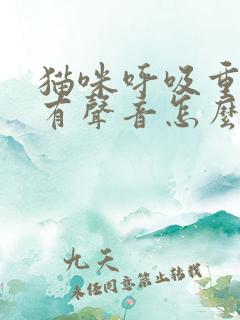 猫咪呼吸重
有聲音怎麼
九天
未經同意禁止轉載